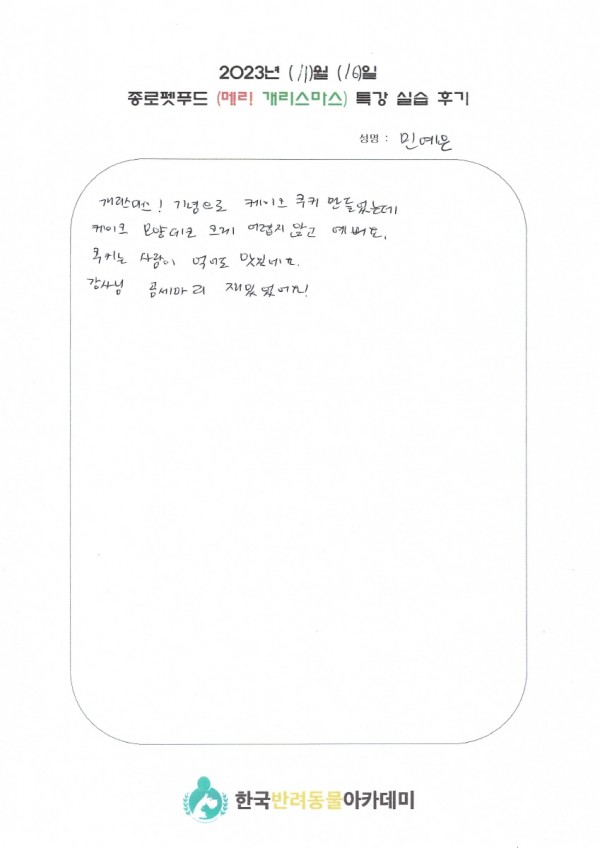 2023년 (11)월 (16)일
종로펫푸드 (메리! 개리스마스) 특강 실습 후기
성명 : 민예은
개리스마스! 기념으로 케이크 쿠키 만들었는데
케이크 모양데코 크게 어렵지 않고 예뻐요.
쿠키는 사람이 먹어도 맛있네요.
강사님 곰세마리 재밌었어요!
한국반려동물아카데미